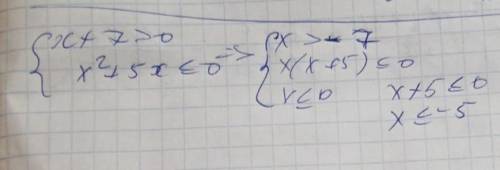 { x + 7 > 0 => { x > - 7
x² + 5x ≤ 0 x(x + 5) ≤ 0
x ≤ 0 x + 5 ≤ 0
x ≤ -5